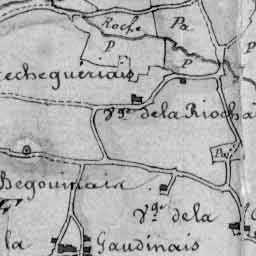 Roche
Pa
P
P
echegueriais
vge de la Riocha
Pa
Begouinais
vge de la
la
Gaudinais